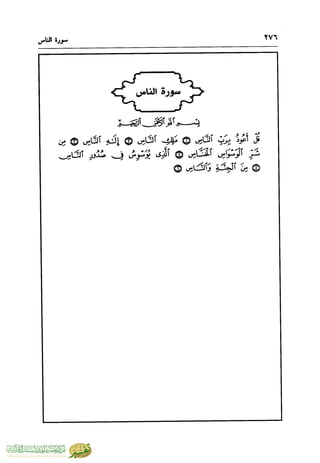 ٢٧٦ سورة الناس
سورة الناس
بِسْمِ ٱللَّهِ ٱلرَّحْمَٰنِ ٱلرَّحِيمِ
قُلْ أَعُوذُ بِرَبِّ ٱلنَّاسِ ۝١ مَلِكِ ٱلنَّاسِ ۝٢ إِلَٰهِ ٱلنَّاسِ ۝٣ مِن
شَرِّ ٱلْوَسْوَاسِ ٱلْخَنَّاسِ ۝٤ ٱلَّذِى يُوَسْوِسُ فِى صُدُورِ ٱلنَّاسِ
۝٥ مِنَ ٱلْجِنَّةِ وَٱلنَّاسِ ۝٦